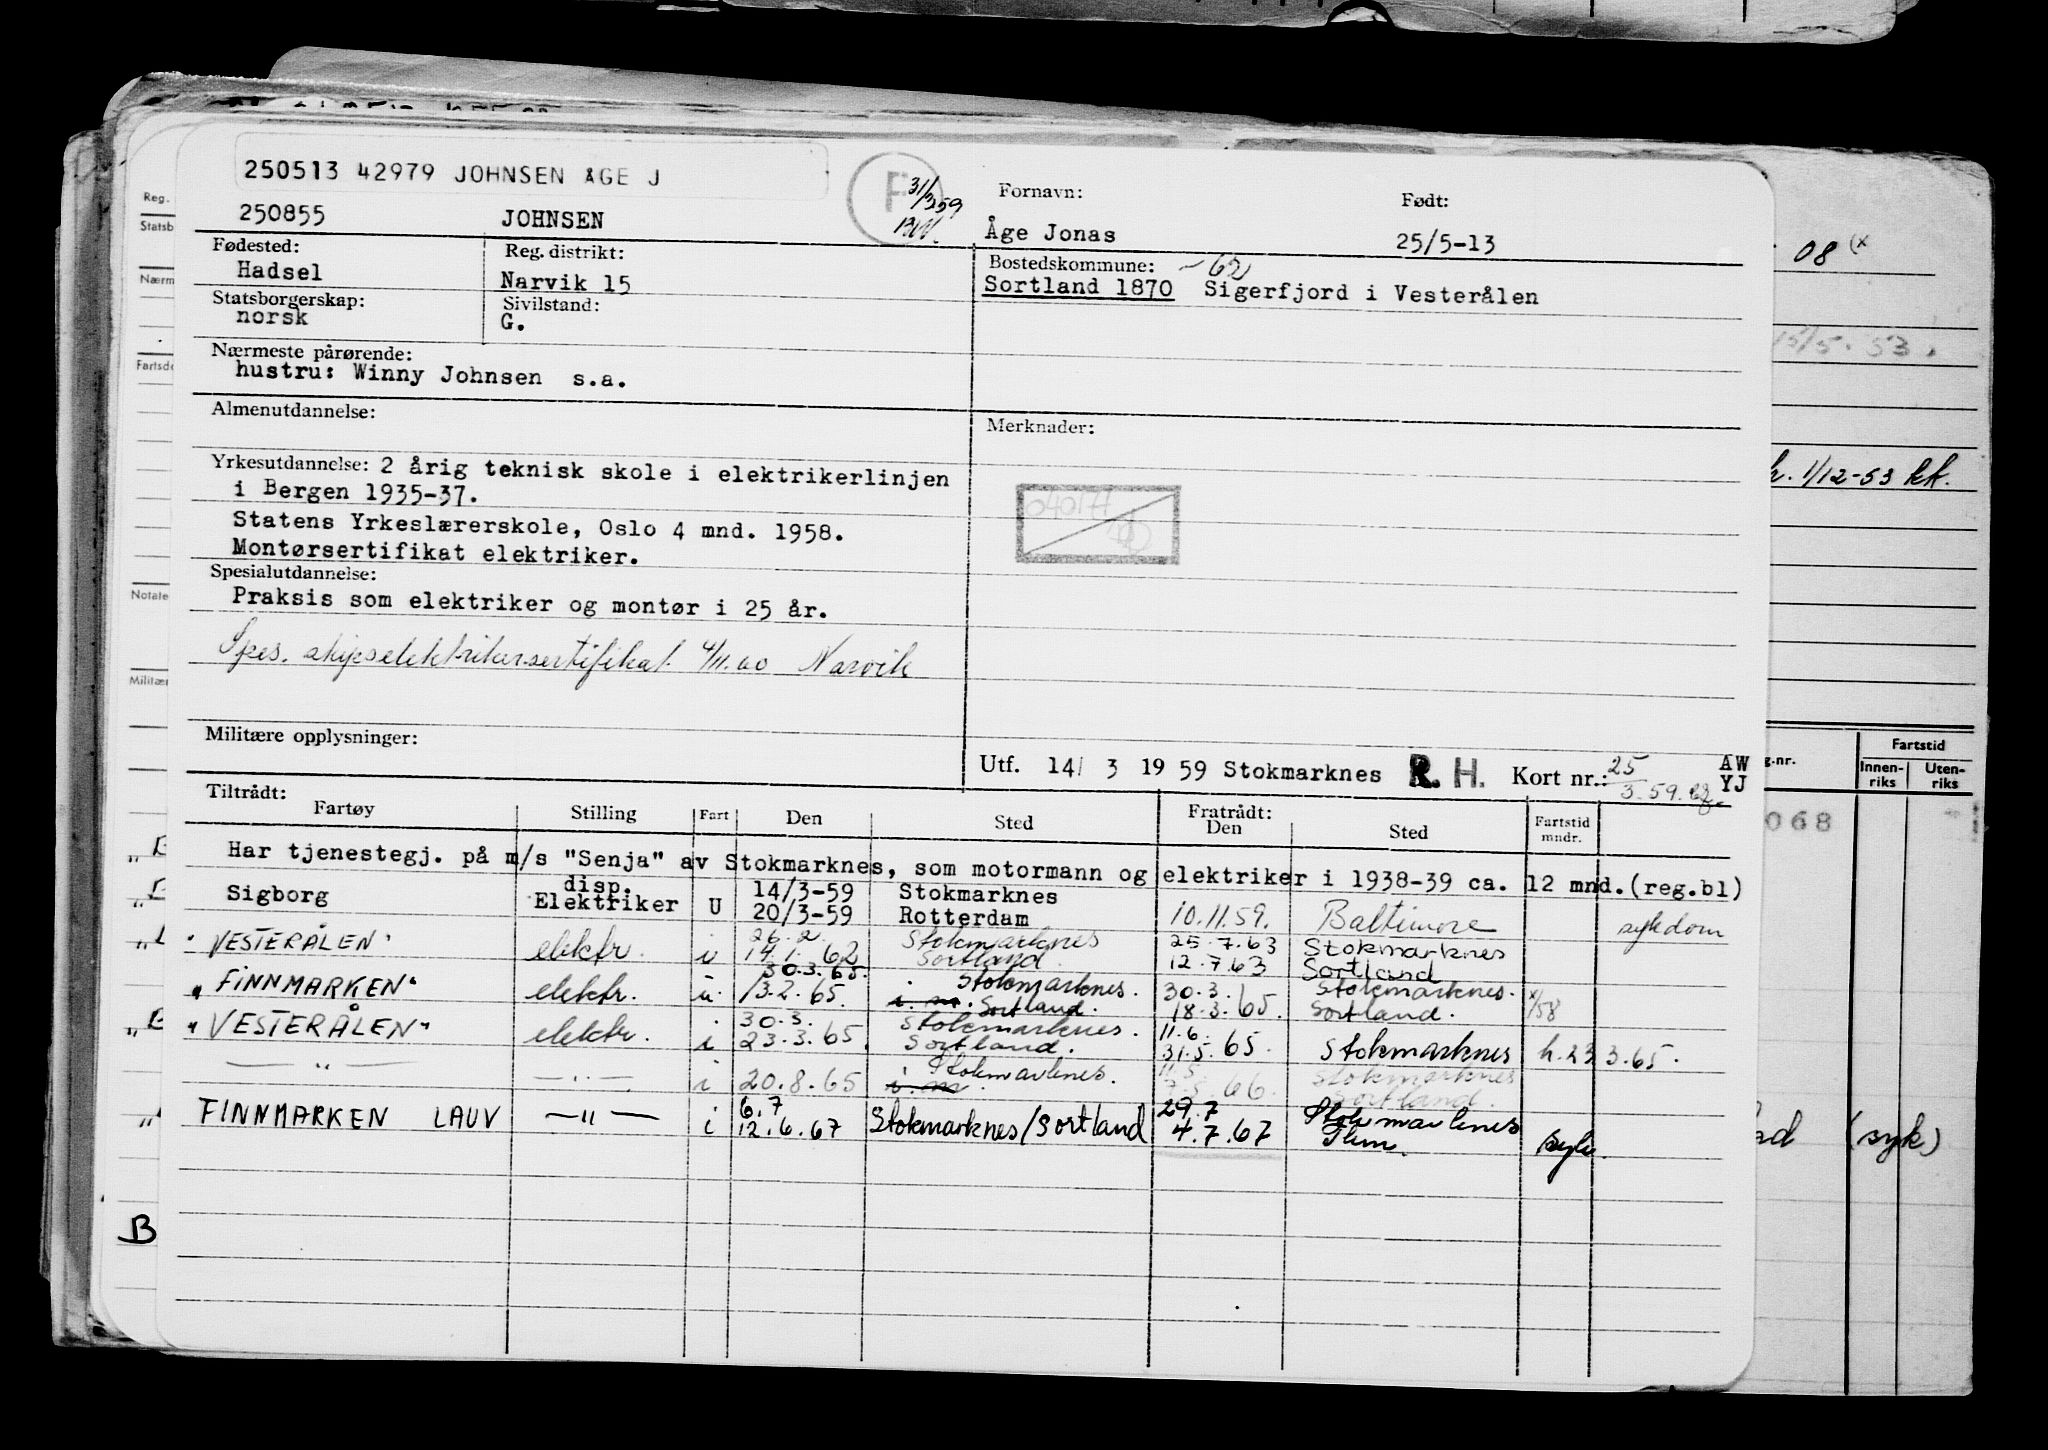 250513 42979 JOHNSEN ÅGE J
250855 JOHNSEN
F 31/3 59
Fornavn: Født:
Åge Jonas 25/5-13
Fødested: Reg. distrikt: Bostedskommune: - 62
Hadsel Narvik 15 Sortland 1870 Sigerfjord i Vesterålen
Statsborgerskap: Sivilstand:
norsk G.
Nærmeste pårørende:
hustru: Winny Johnsen s.a.
Almenutdannelse: Merknader:
Yrkesutdannelse: 2 årig teknisk skole i elektrikerlinjen
i Bergen 1935-37.
Statens Yrkeslærerskole, Oslo 4 mnd. 1958.
Montørsertifikat elektriker.
040177
Spesialutdannelse:
Praksis som elektriker og montør i 25 år.
Spes. skipselektrikersertifikat 4/11.60 Narvik
Militære opplysninger:
Utf. 14/ 3 19 59 Stokmarknes R. H. Kort nr.: 25 AW
3.59. YJ
Tiltrådt: Fratrådt:
Fartøy Stilling Fart Den Sted Den Sted Fartstid mndr.
Har tjenestegj. på m/s "Senja" av Stokmarknes, som motormann og elektriker i 1938-39 ca. 12 mnd.(reg.bl)
disp. 14/3-59 Stokmarknes
Sigborg Elektriker U 20/3-59 Rotterdam 10.11.59. Baltimore sykdom
26.2 Stokmarknes 25.7.63 Stokmarknes
"VESTERÅLEN" elektr. i 14.1.62 Sortland 12.7.63 Sortland
30.3.65. Stokmarknes. 30.3. Stokmarknes.
"FINNMARKEN" elektr. i 13.2.65. i.m. Sortland. 18.3.65. Sortland. x/58
30.3. Stokmarknes. 11.6.
"VESTERÅLEN" elektr. i 23.3.65. Sortland. 31.5.65. Stokmarknes h.23 3.65.
Stokmarknes. 11.5. Stokmarknes
— " — — " — i 20.8.65 i.m. 7.5.66. Sortland.
6.7 29.7 Stokmarknes
FINNMARKEN LAUV — " — i 12.6.67 Stokmarknes/Sortland 4.7.67 syk.
Reg.
Statsb
Nærm
Fartsde
Notate
Militær
B
08 (x
15/5.53.
1/12-53 kk.
g.nr. Fartstid
Innen-
riks
Uten-
riks
068
(syk)